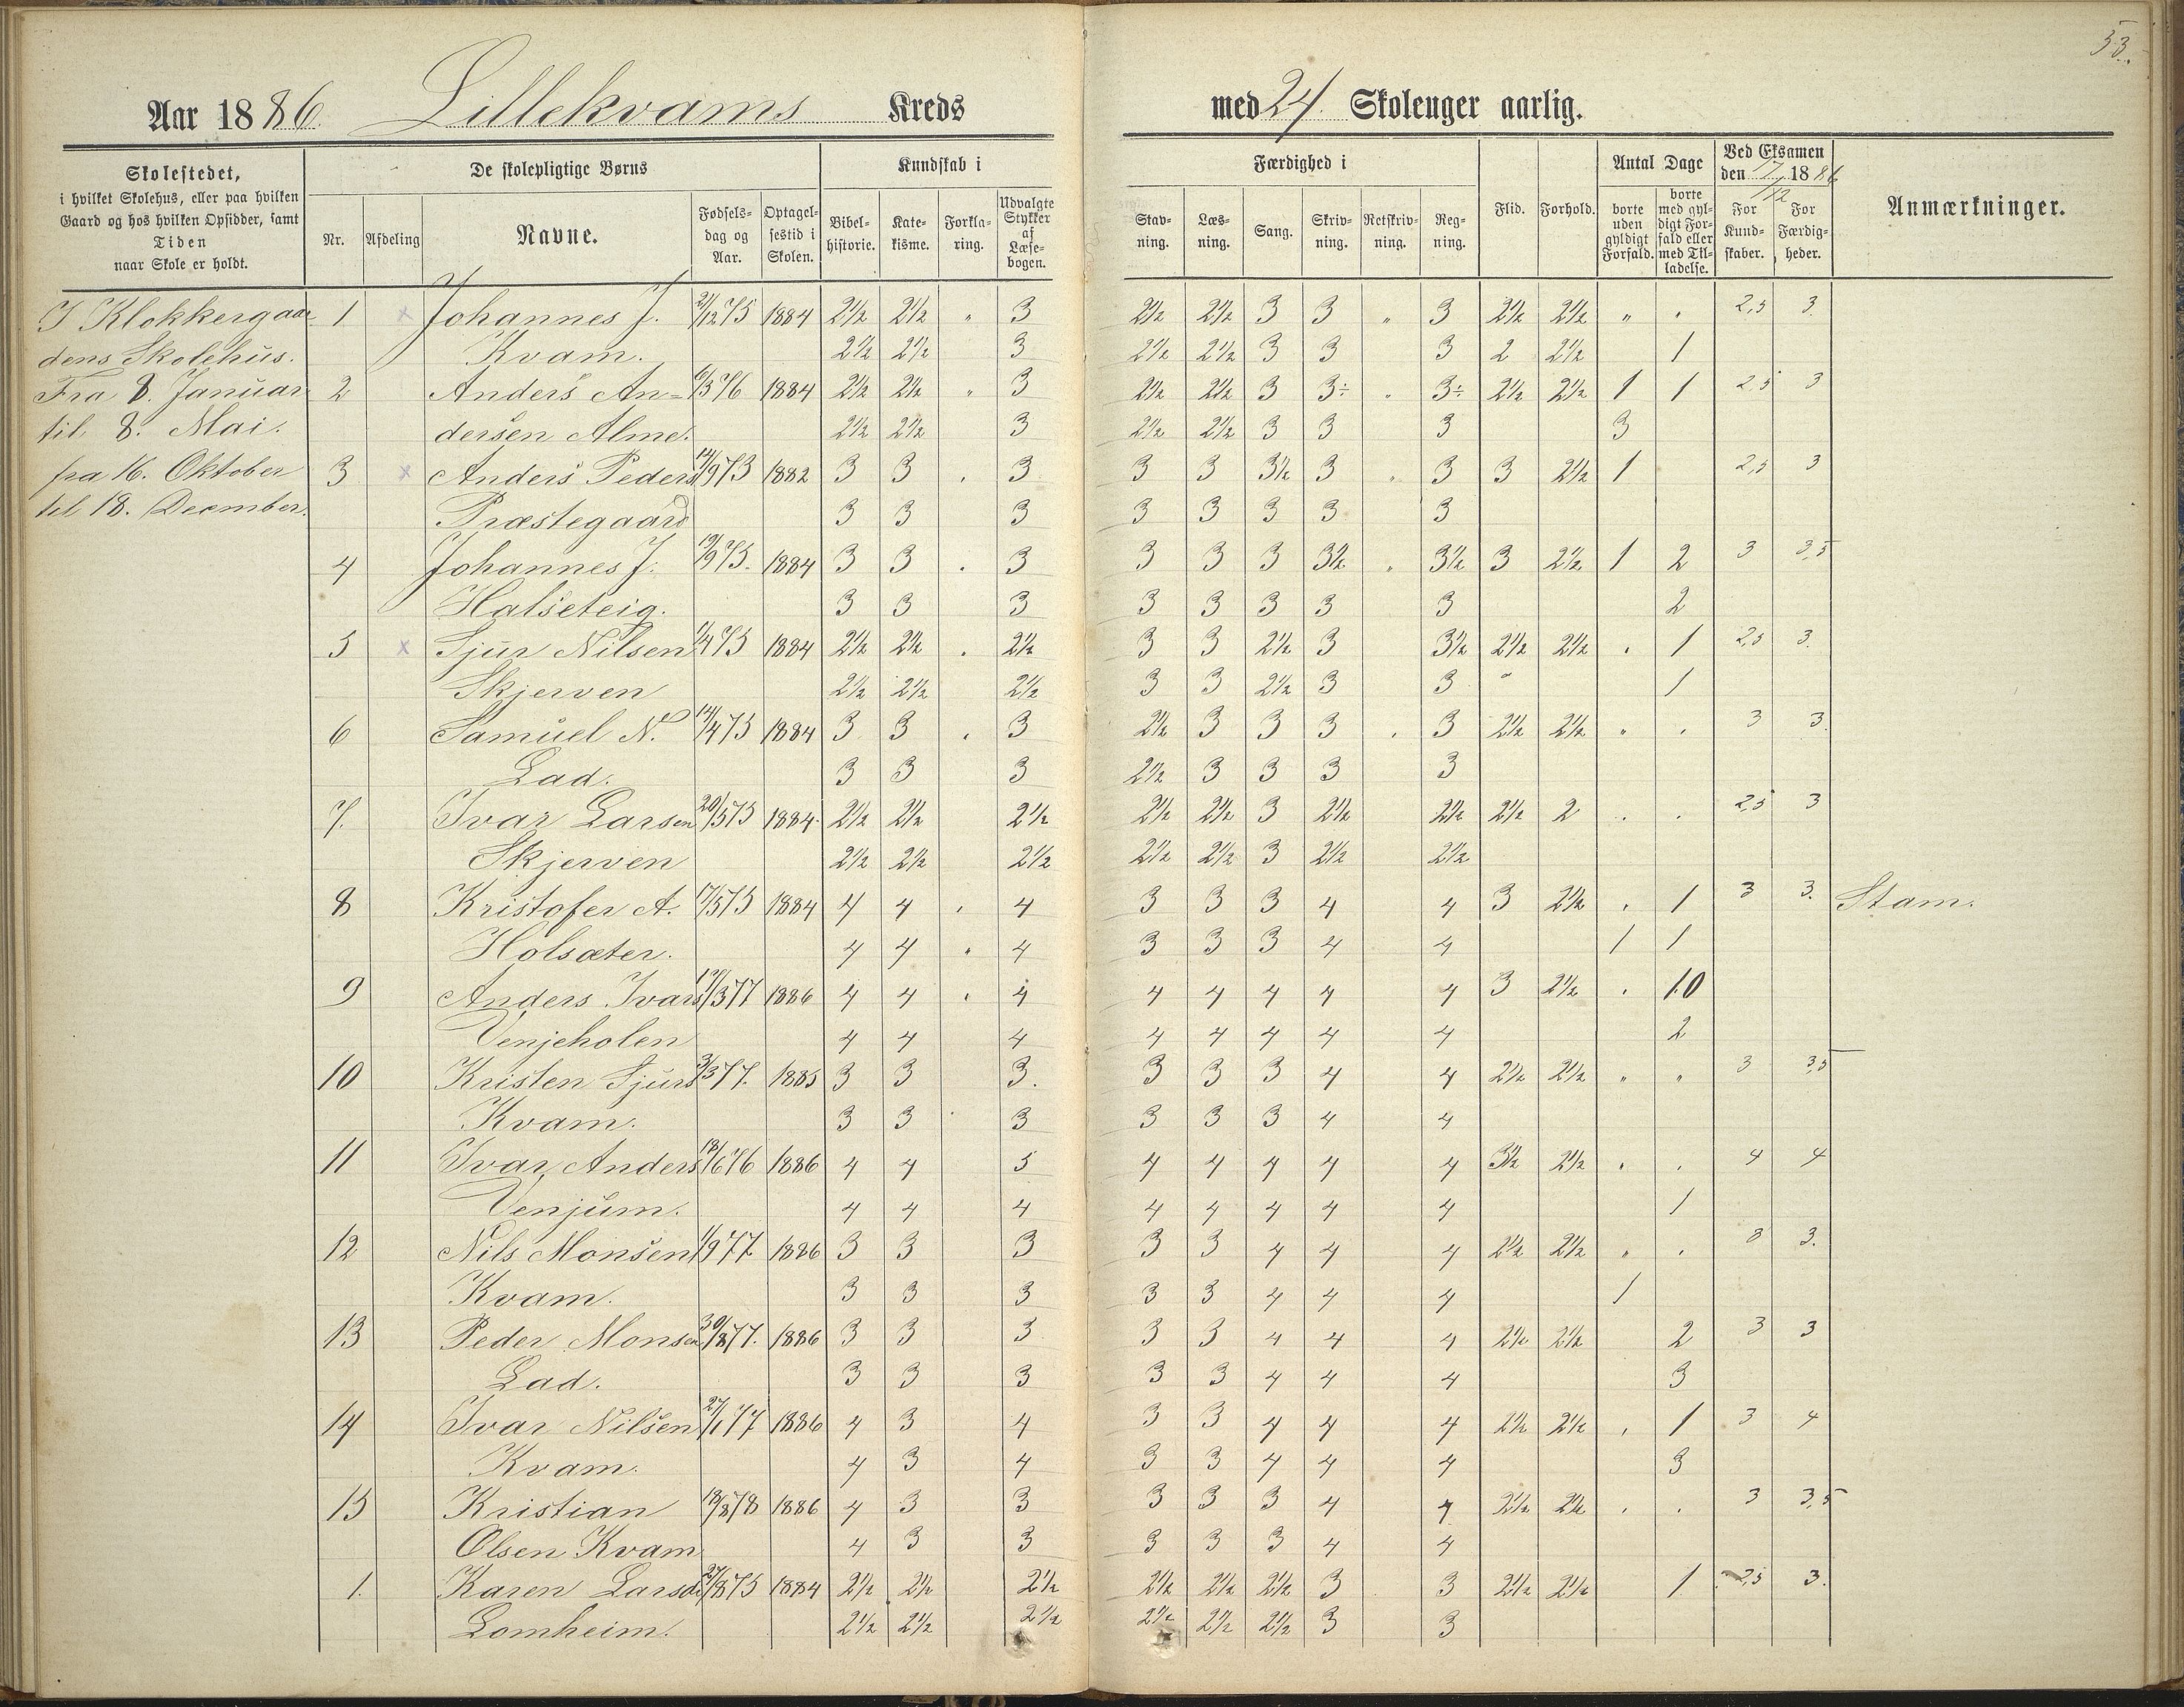 53.
Aar 1886 Lillekvams Kreds med 24 Skoleuger aarlig.
Skolestedet, i hvilket Skolehus, eller paa hvilken Gaard og hos hvilken Opsidder, samt Tiden naar Skole er holdt.
De skolepligtige Børns
Nr. Afdeling Navne. Fødselsdag og Aar. Optagelsestid i Skolen.
Kundskab i
Bibelhistorie. Katekisme. Forklaring. Udvalgte Stykker af Læsebogen.
Færdighed i
Stavning. Læsning. Sang. Skrivning. Retskrivning. Regning.
Flid. Forhold.
Antal Dage
borte uden gyldigt Forfald. borte med gyldigt Forfald eller med Tilladelse.
Ved Eksamen den 17/12 1886
For Kundskaber. For Færdigheder.
Anmærkninger.
I Klokkergaar-
dens Skolehus.
Fra 8. Januar
til 8. Mai.
fra 16. Oktober
til 18. December.
1 x Johannes J. 21/12 75 1884 2½ 2½ " 3 2½ 2½ 3 3 " 3 2½ 2½ " " 2,5 3.
Kvam. 2½ 2½ 3 2½ 2½ 3 3 3 2 2½ 1
2 Anders An= 6/3 76 1884 2½ 2½ " 3 2½ 2½ 3 3÷ " 3÷ 2½ 2½ 1 1 2,5 3
dersen Alme. 2½ 2½ 3 2½ 2½ 3 3 3 3
3 x Anders Peders 14/9 73 1882 3 3 " 3 3 3 3½ 3 " 3 3 2½ 1 2,5 3
Præstegaard 3 3 3 3 3 3 3 3
4 Johannes J. 19/9 75. 1884 3 3 " 3 3 3 3 3½ " 3½ 3 2½ 1 2 3 3,5
Halseteig. 3 3 3 3 3 3 3 3 2
5 x Sjur Nilsen 1/4 75 1884 2½ 2½ " 2½ 3 3 2½ 3 3½ 2½ 2½ " 1 2,5 3.
Skjerven 2½ 2½ 2½ 3 3 2½ 3 3 " 1
6 Samuel N. 14/4 75 1884 3 3 " 3 2½ 3 3 3 " 3 2½ 2½ " " 3 3.
Lad. 3 3 3 2½ 3 3 3 3
7. Ivar Larsen 20/5 75 1884. 2½ 2½ 2½ 2½ 2½ 3 2½ 2½ 2½ 2 " " 2,5 3
Skjerven 2½ 2½ 2½ 2½ 2½ 3 2½ 2½
8 Kristofer A. 17/5 75 1884 4 4 " 4 3 3 3 4 4 3 2½ " 1 3 3. Stam.
Holsæter. 4 4 " 4 3 3 3 4 4 1 1
9 Anders Ivars 1886 4 4 " 4 4 4 4 4 4 3 2½ " 10
Venjeholen 4 4 4 4 4 4 4 4 2
10 Kristen Sjurs 3/3 77. 1885 3 3 3. 3 3 3 4 4 2½ 2½ " " 3 3,5
Kvam. 3 3 3 3 3 3 4 4
11 Ivar Anders 18/6 76 1886 4 4 5 4 4 4 4 4 3½ 2½ " " 4 4
Venjum. 4 4 4 4 4 4 4 4 1
12 Nils Monsen 1/9 77. 1886 3 3 3 3 3 4 4 4 2½ 2½ " " 3 3.
Kvam. 3 3 3 3 3 4 4 4 1
13 Peder Monsen 30/8 77. 1886 3 3 3 3 3 4 4 4 2½ 2½ 2 3 3
Lad. 3 3 3 3 3 4 4 4 3
14 Ivar Nilsen 27/1 77 1886 4 3 4 3 3 4 4 4 2½ 2½ " 1 3 4
Kvam. 4 3 4 3 3 4 4 4 3
15 Kristian 18/8 78 1886 4 3 3 3 3 3 4 4 2½ 2½ " " 3 3,5
Olsen Kvam 4 3 3 3 3 3 4 4
1. Karen Larsd. 27/8 75 1884 2½ 2½ 2½ 2½ 2½ 2½ 3 3 2½ 2½ 1 2,5 3.
Lomheim. 2½ 2½ 2½ 2½ 2½ 2½ 3 3